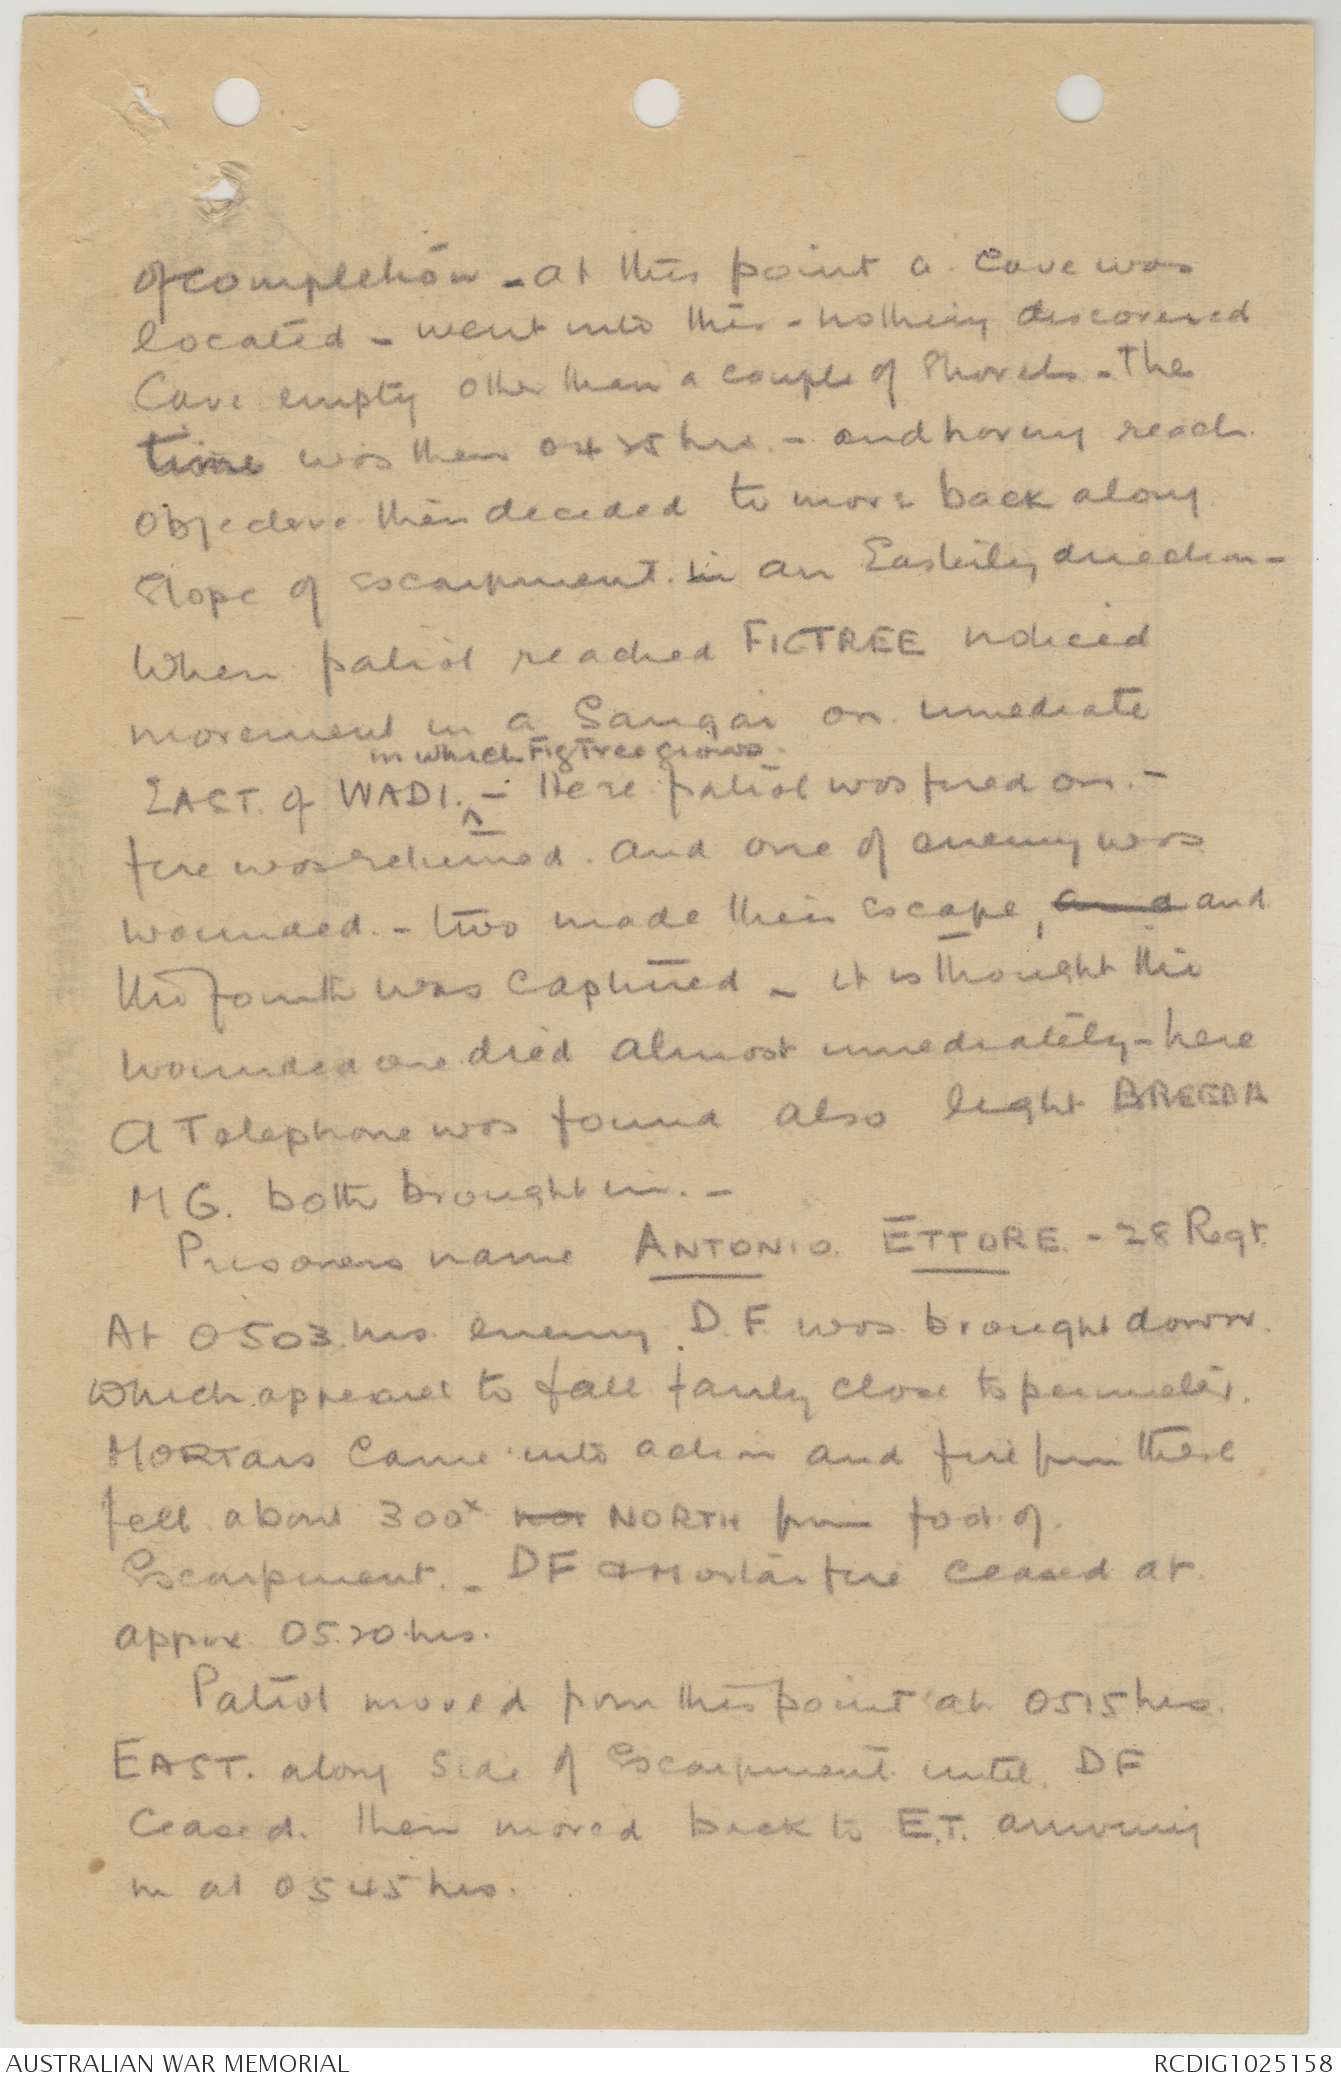 of completion - at this point a cave was
located - went into this - nothing discovered
Cave empty other than a couple of Shovels - The
time was then 0425 hrs. - and having reach
objective then decided to move back along
Slope of escarpment. in an Easterly direction -
When patrol reached FIGTREE noticed
movement in a Sangar on immediate
in which Fig Tree grows.
EAST. of WADI. - Here patrol was fired on. -
fire was returned. and one of enemy was
wounded. - two made their escape, and and
the fourth was captured - it is thought the
wounded one died almost immediately - here
a Telephone was found also light BREEDA
M G. both brought in. -
Prisoners name ANTONIO. ETTORE. - 28 Regt.
At 0503. hrs. enemy D.F. was brought down.
which appeared to fall fairly close to perimeter.
MORTars came into action and fire from these
fell about 300x NORTH from foot of
Escarpment. - DF & Mortar fire ceased at
approx 0520 hrs.
Patrol moved from this point at 0515 hrs.
EAST. along side of Escarpment until DF
Ceased. then moved back to E.T. arriving
in at 0545 hrs.
AUSTRALIAN WAR MEMORIAL
RCDIG1025158